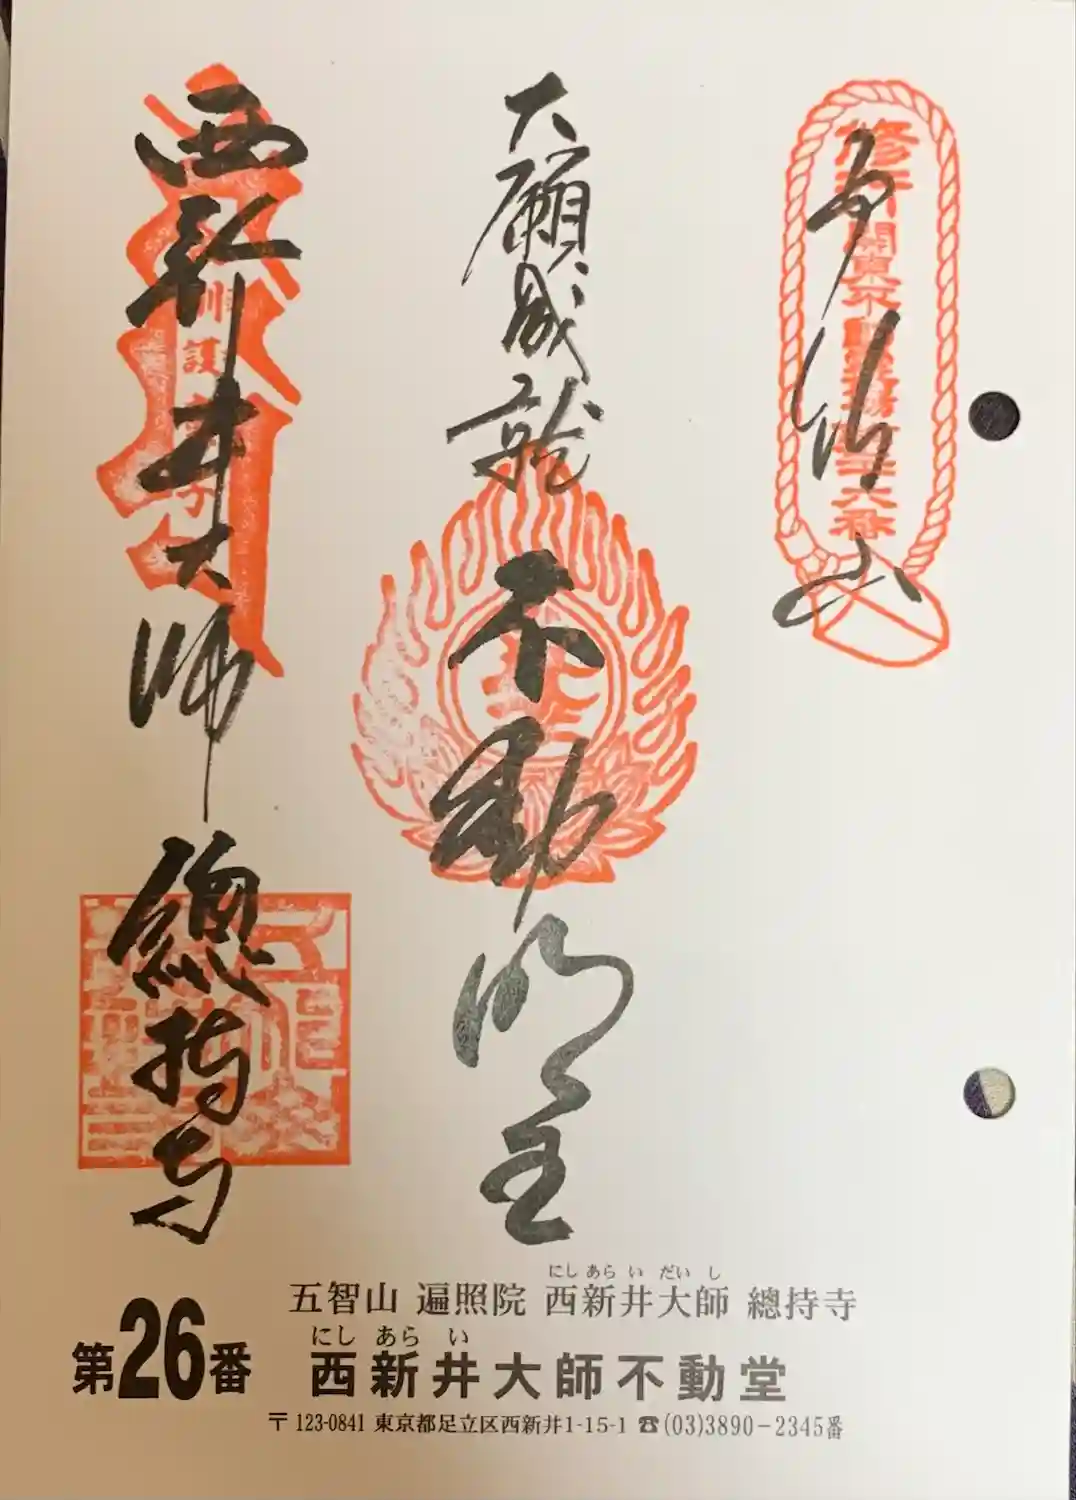 奉拝
修行
関東不動霊場第二十六番
大願成就
不動明王
西新井大師
總持寺
五智山 遍照院 西新井大師 總持寺
にし あら い だい し
第26番
西新井大師不動堂
にし あら い
〒123-0841 東京都足立区西新井1-15-1 ☎(03)3890-2345番